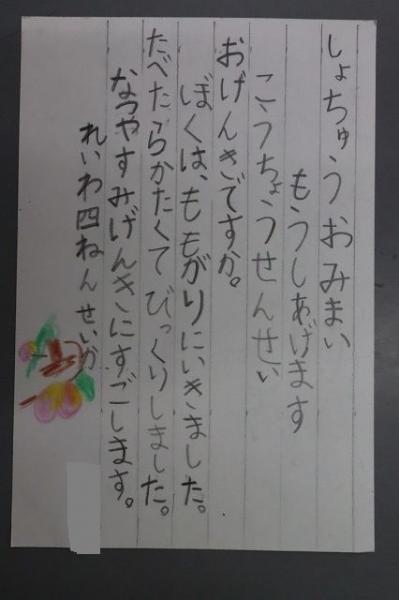 しょちゅうおみまい
もうしあげます
こうちょうせんせい
おげんきですか。
ぼくは、ももがりにいきました。
たべたらかたくてびっくりしました。
なつやすみげんきにすごします。
れいわ四ねん せいか